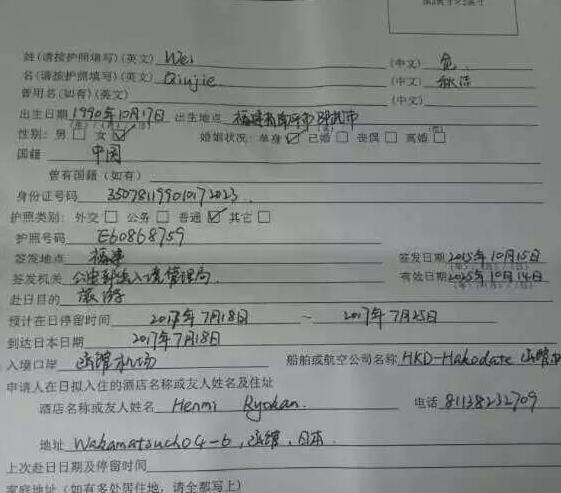 姓(请按护照填写)(英文) Wei (中文) 危
名(请按护照填写)(英文) Qiujie (中文) 秋洁
曾用名(如有)(英文) (中文)
出生日期 1990年10月17日 出生地点 福建省南平市邵武市
性别: 男 □ 女 ☑ 婚姻状况: 单身 ☑ 已婚 □ 丧偶 □ 离婚 □
国籍 中国
曾有国籍(如有)
身份证号码 350781199010172023
护照类别: 外交 □ 公务 □ 普通 ☑ 其它 □
护照号码 E60868759
签发地点 福建 签发日期 2015年10月15日
签发机关 公安部出入境管理局 有效日期 2025年10月14日
赴日目的 旅游
预计在日停留时间 2017年7月18日 ~ 2017年7月25日
到达日本日期 2017年7月18日
入境口岸 函馆机场 船舶或航空公司名称 HKD-Hakodate 函馆
申请人在日拟入住的酒店名称或友人姓名及住址
酒店名称或友人姓名 Henmi Ryokan. 电话 81138232709
地址 Wakamatsucho 4-6, 函馆, 日本
上次赴日日期及停留时间
家庭地址(如有多处居住地, 请全部写上)